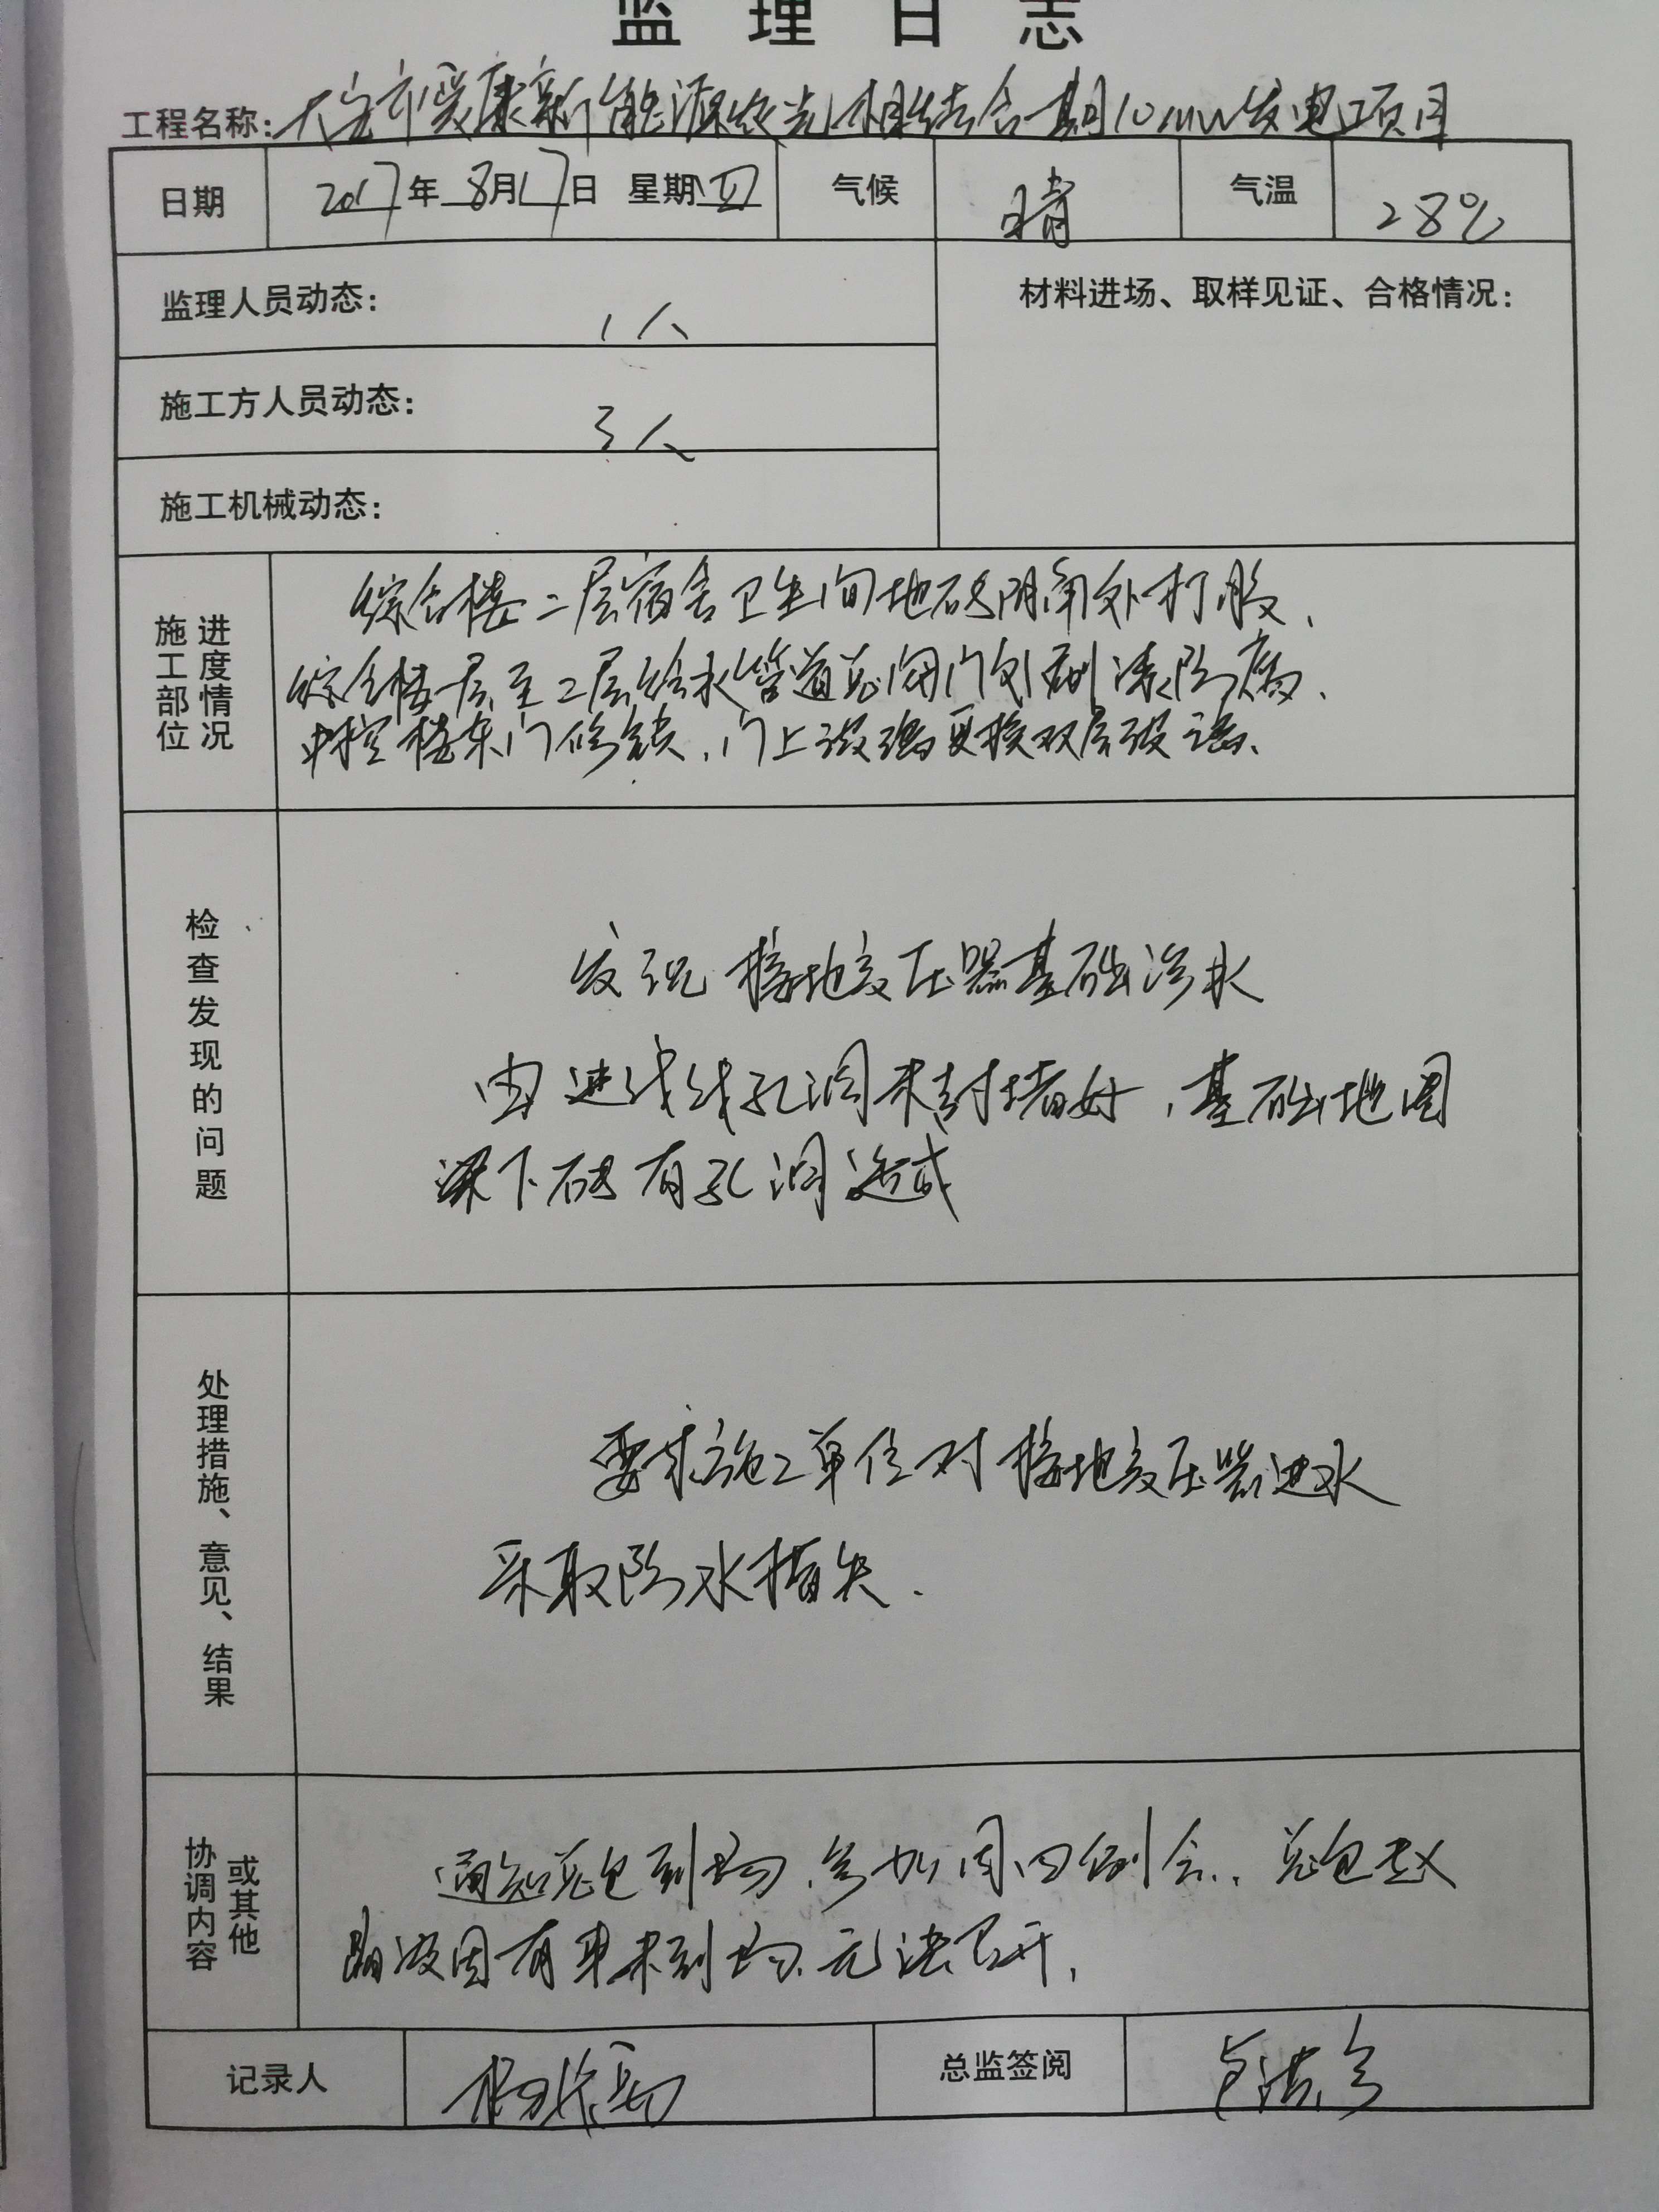 监理日志
工程名称：大安市爱康新能源农光相结合一期10MW发电项目
日期 2017年8月17日 星期四 气候 晴 气温 28℃
监理人员动态： 1人
材料进场、取样见证、合格情况：
施工方人员动态： 3人
施工机械动态：
施工部位 进度情况
综合楼二层宿舍卫生间地砖阴角处打胶、
综合楼一层至二层给水管道总阀门处刷漆防腐、
中控楼东门修锁，门上玻璃更换双层玻璃、
检查发现的问题
发现接地变压器基础渗水
由进线孔洞未封堵好，基础地圈
梁下砖有孔洞造成
处理措施、意见、结果
要求施工单位对接地变压器进水
采取防水措失、
协调内容 或其他
通知总包到场，参加周四例会，总包赵
因有事未到场，无法召开，
记录人
总监签阅